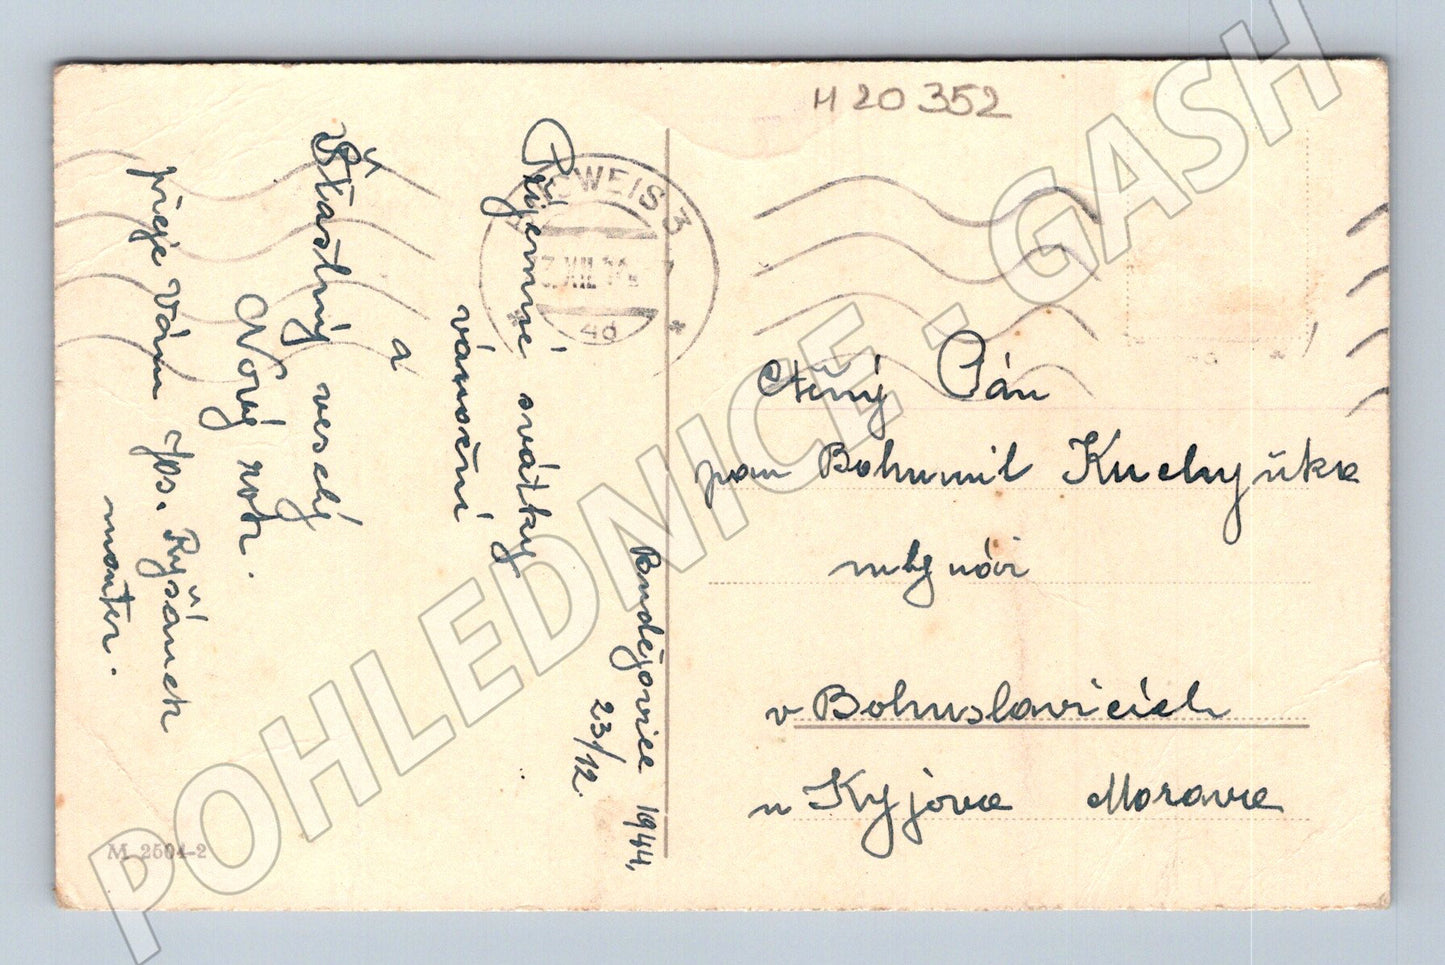 H 20 352
Příjemné svátky
vánoční
a
Šťastný veselý
Nový rok.
přeje Vám Jos. Ryšánek
monter.
Budějovice 1944,
23/12.
WEIS 3
XII
4d
Ctěný Pán
pan Bohumil Kuchyňka
mlynář
v Bohuslavicích
u Kyjova Morava
M 2504-2
POHLEDNICE - GASH